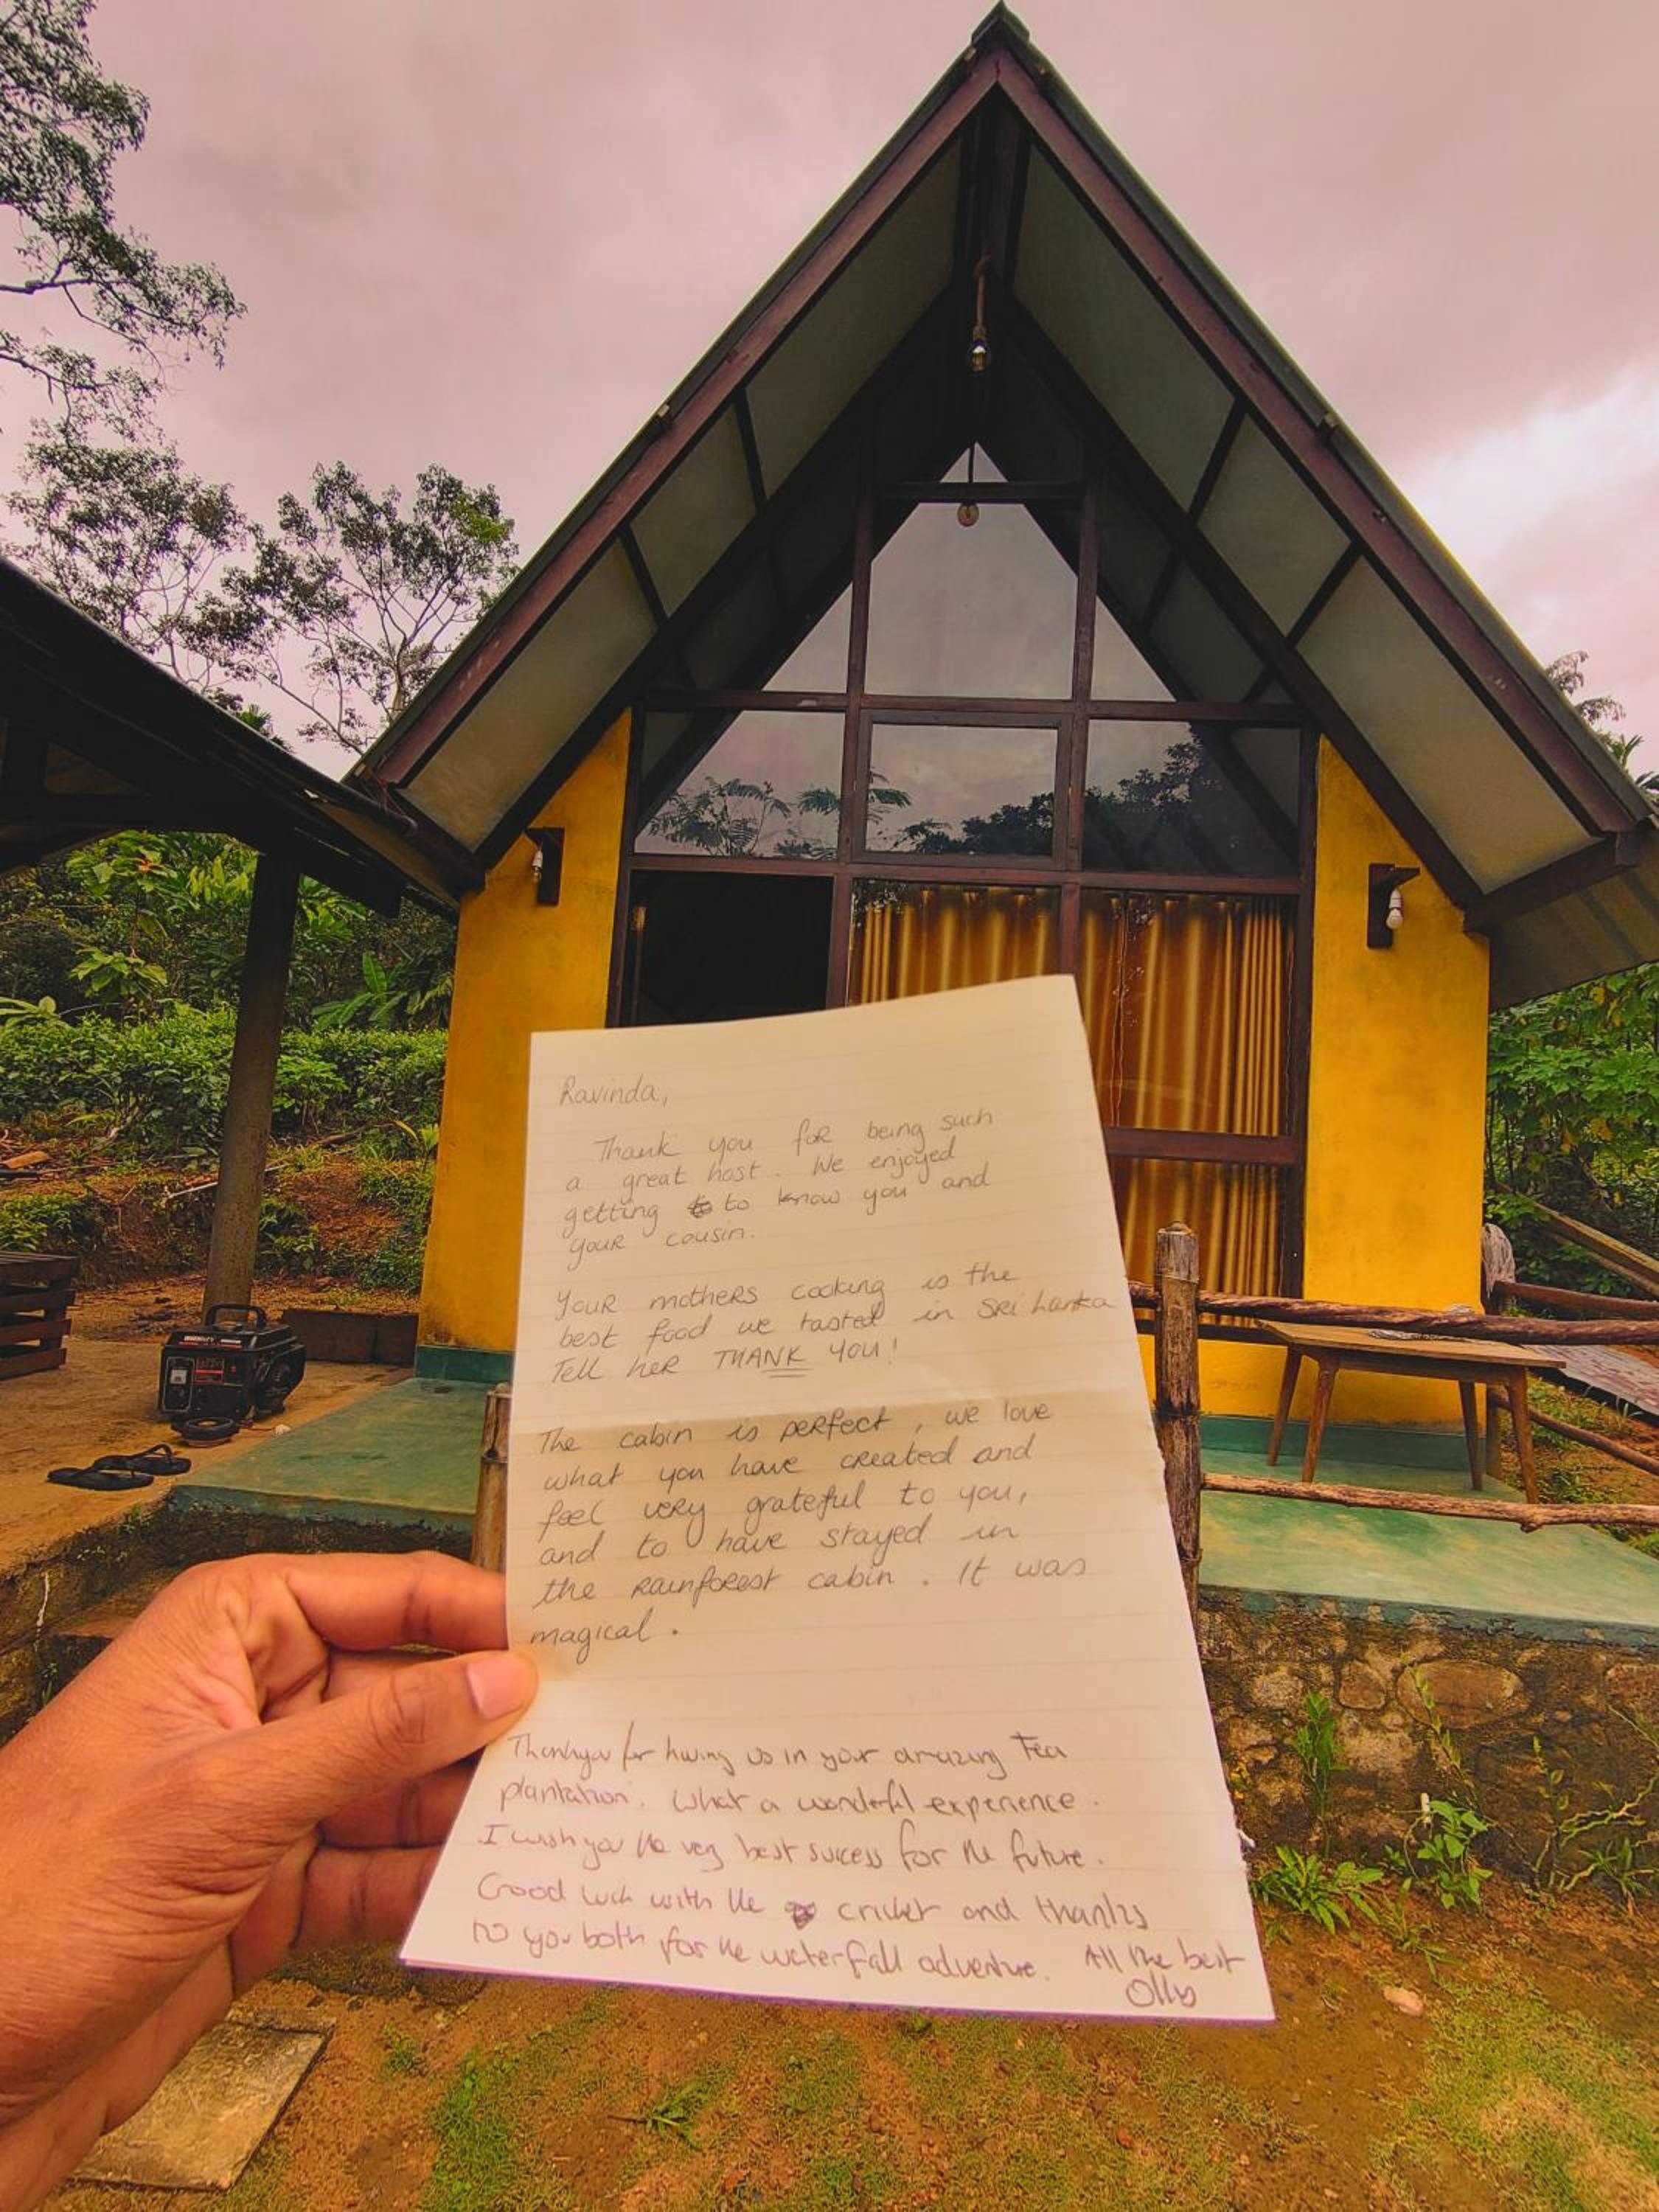 Ravinda,
Thank you for being such
a great host. We enjoyed
getting to know you and
your cousin.
Your mothers cooking is the
best food we tasted in Sri Lanka
Tell her THANK YOU!
The cabin is perfect, we love
what you have created and
feel very grateful to you,
and to have stayed in
the rainforest cabin. It was
magical.
Thankyou for having us in your amazing tea
plantation. What a wonderful experience.
I wish you the very best success for the future.
Good luck with the cricket and thanks
to you both for the waterfall adventure. All the best
Olly